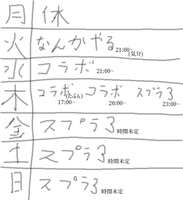 月 休
火 なんかやる 21:00~(気分)
水 コラボ 21:00~
木 コラボ(たぶん) 17:00~ コラボ 20:00~ スプラ3 23:00~
金 スプラ3 時間未定
土 スプラ3 時間未定
日 スプラ3 時間未定